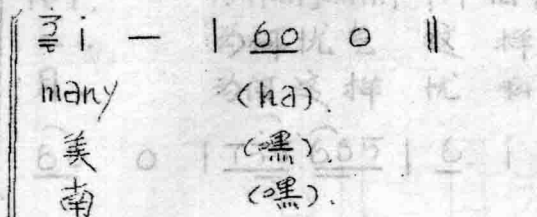 i — | 60 0 ‖
many (ha).
美 (嘿).
南 (嘿).